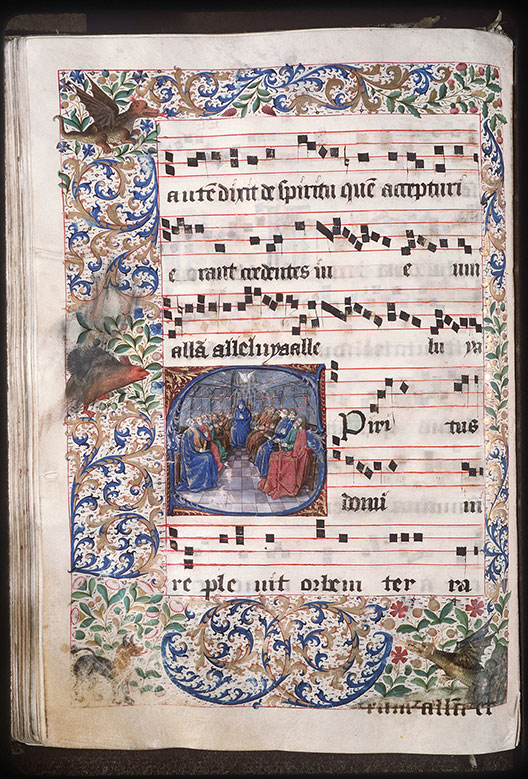 autē dixit de spiritu quē accepturi
e rant credentes in e um
alla alleluya alle lu ya
Spiri tus
domi ni
re ple uit orbem ter ra
rum alla et